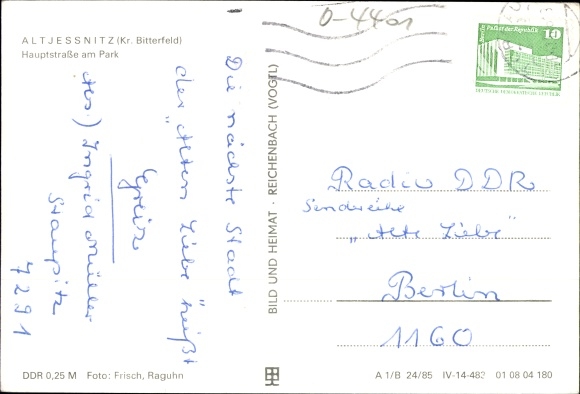 0-4401
ALTJESSNITZ (Kr. Bitterfeld)
Hauptstraße am Park
Die nächste Stadt
der „Alten Liebe" heißt
Greiz
Abs.) Ingrid Müller
Staupitz
7291
BILD UND HEIMAT · REICHENBACH (VOGTL)
Berlin Palast der Republik
10
DEUTSCHE DEMOKRATISCHE REPUBLIK
Radio DDR
Sendreihe
„Alte Liebe"
Berlin
1160
DDR 0,25 M Foto: Frisch, Raguhn
A 1/B 24/85 IV-14-482 01 08 04 180